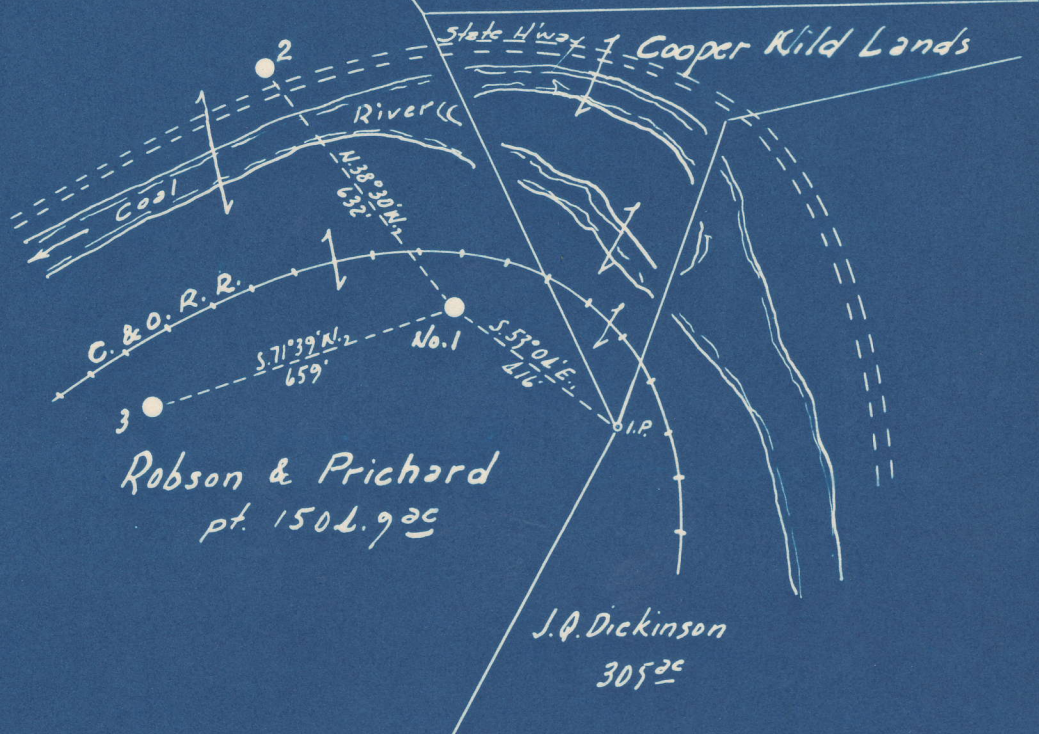 State H'way
Cooper Wild Lands
2
River
Coal
N.38°30'W.
632'
C. & O. R. R.
No.1
S.71°39'W.
659'
S.53°04'E.
416'
3
I.P.
Robson & Prichard
pt. 1504.9 ac
J.Q. Dickinson
305 ac